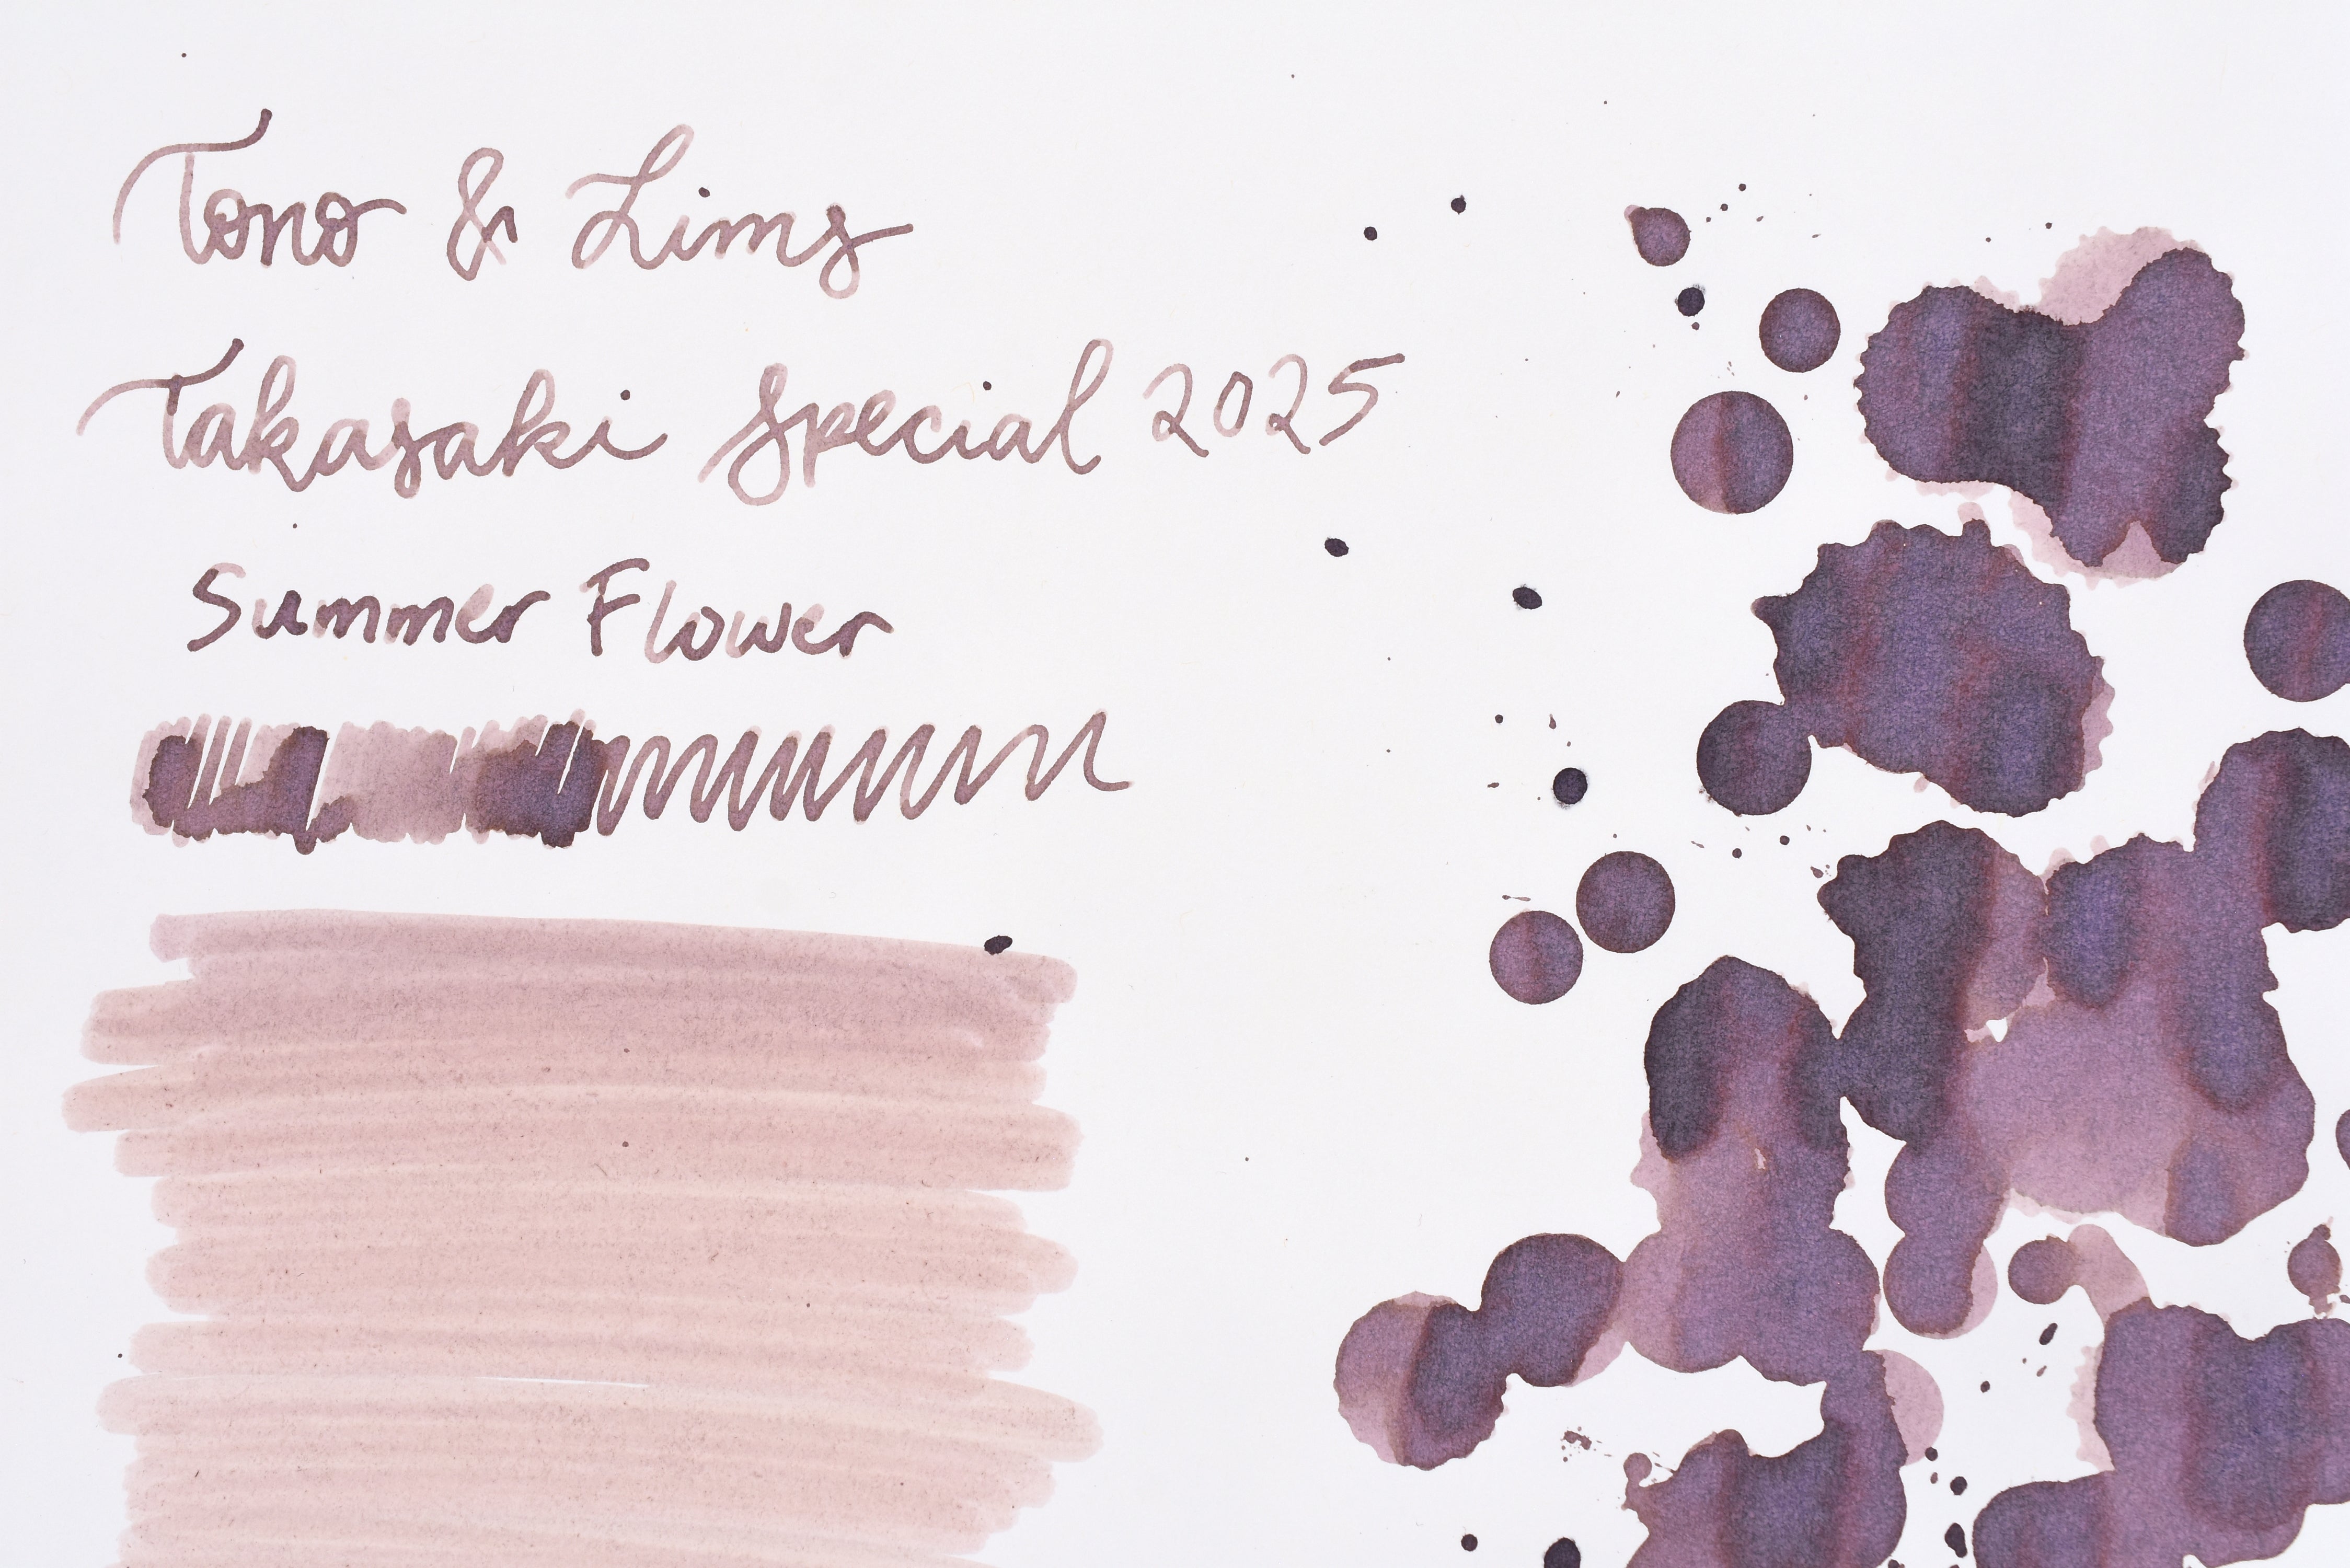 Tono & Lims
Takasaki Special 2025
Summer Flower